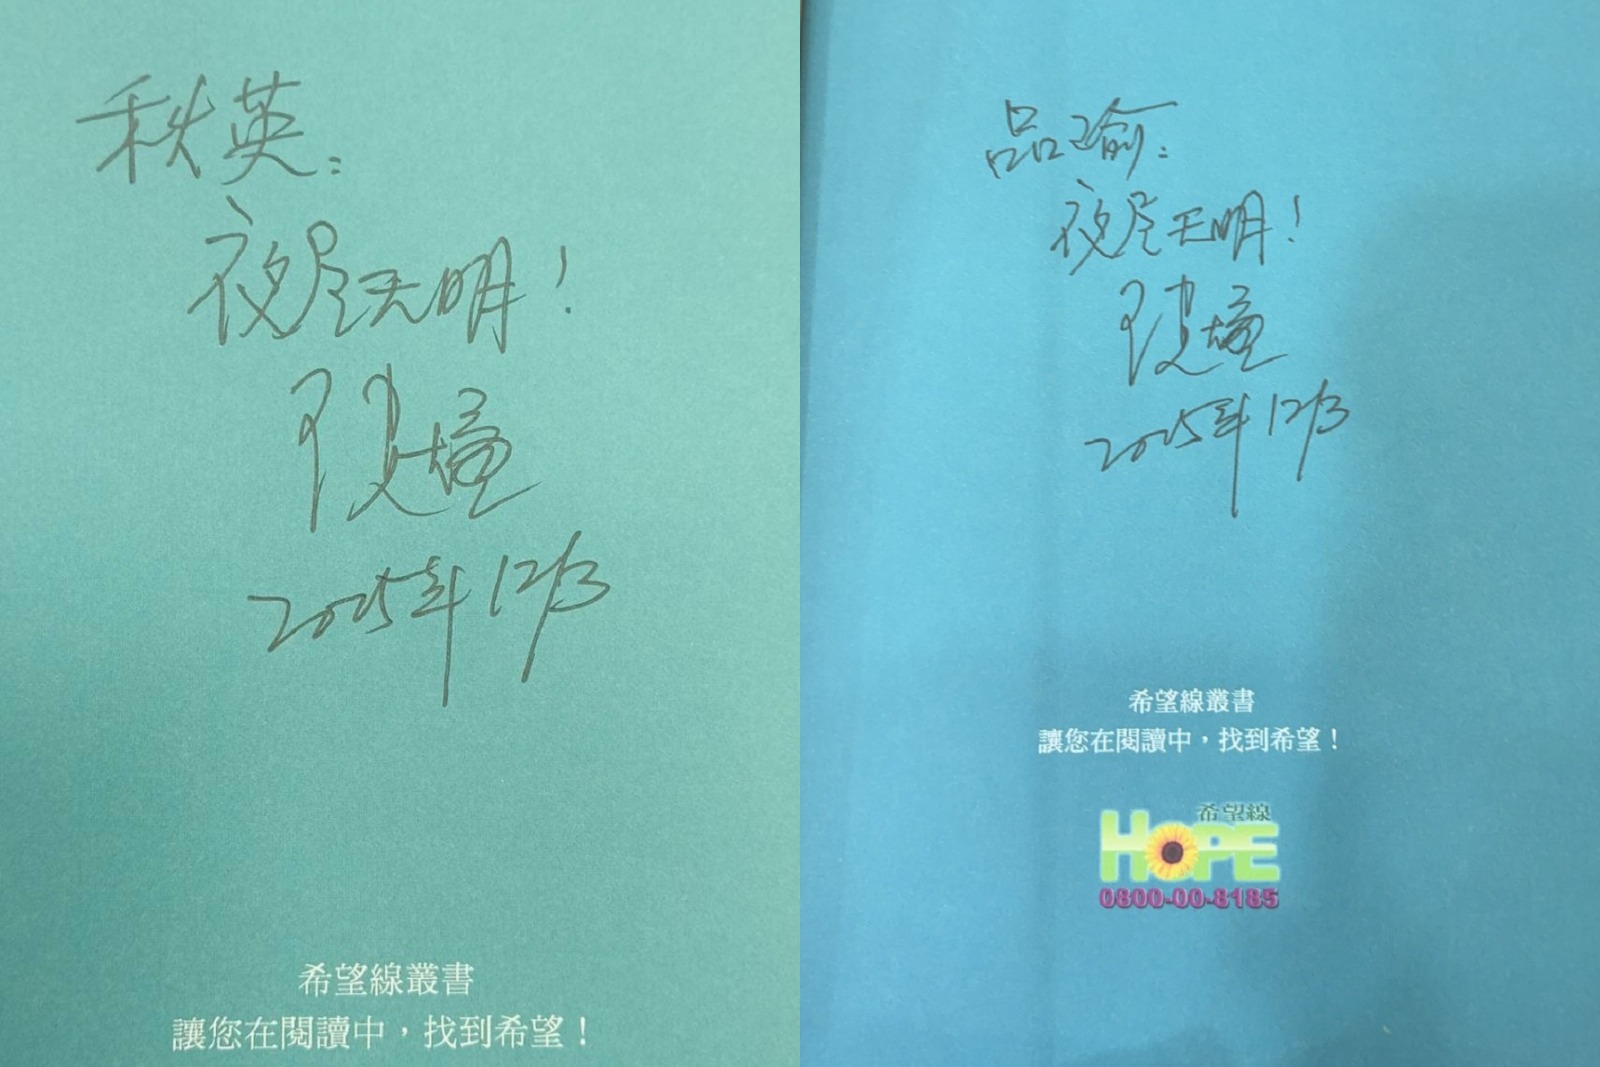 秋英:
夜尽天明!
2025年12/3
希望線叢書
讓您在閱讀中，找到希望！
品瑜:
夜尽天明!
2025年12/3
希望線叢書
讓您在閱讀中，找到希望！
希望線
HOPE
0800-00-8185